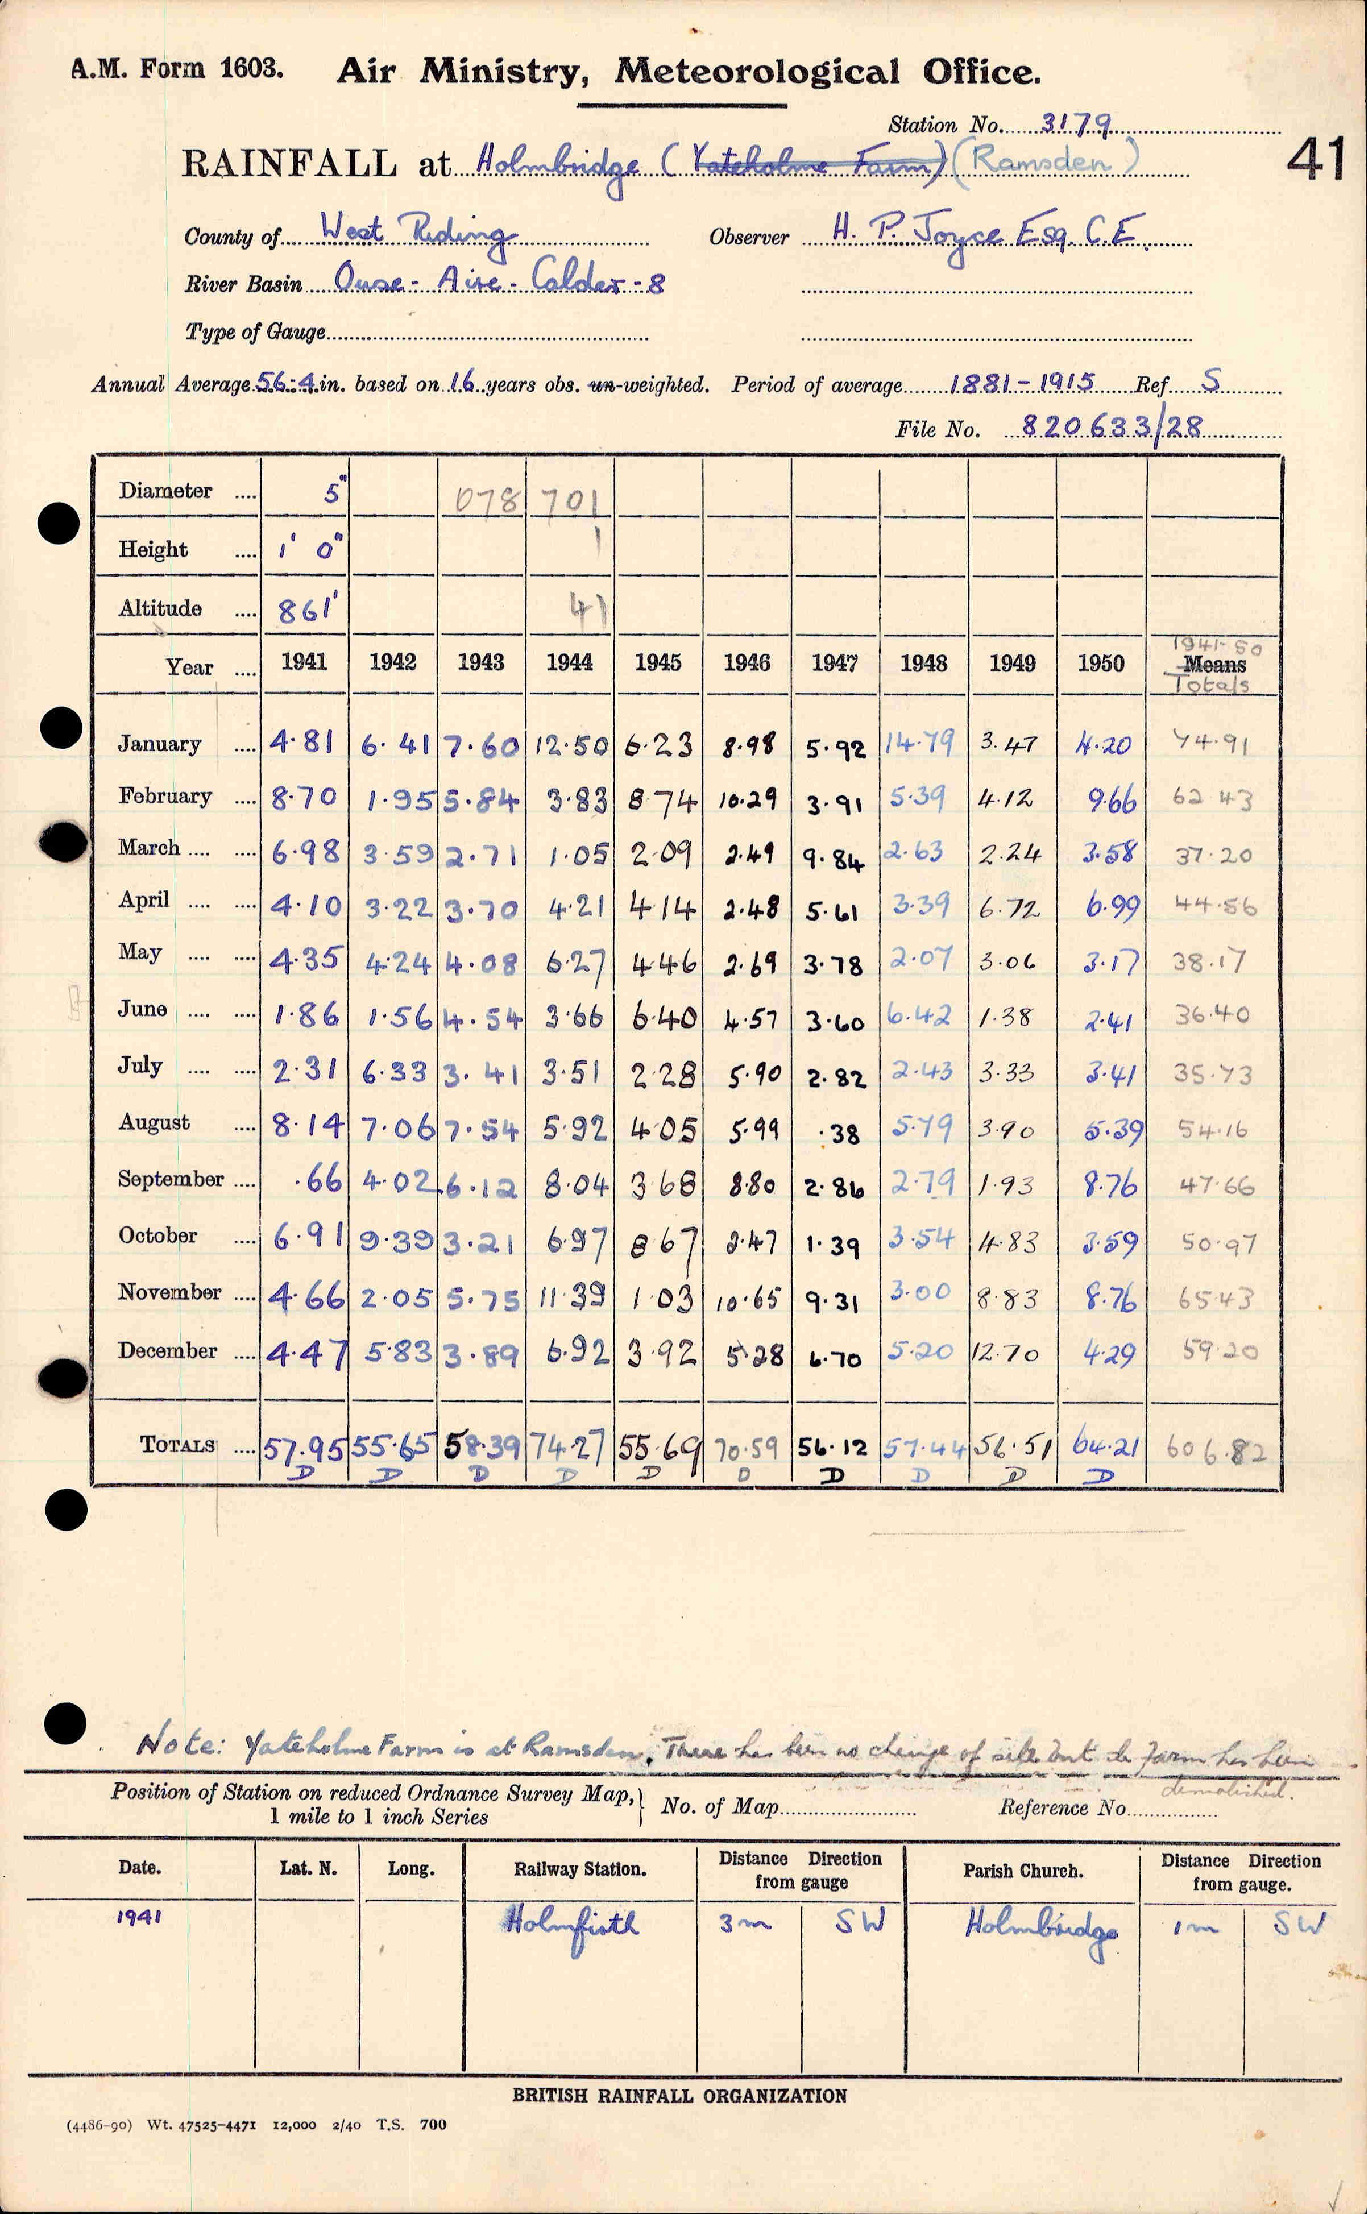 A.M. Form 1603. Air Ministry, Meteorological Office.
Station No. 3179
RAINFALL at Holmbridge (Yateholme Farm) (Ramsden) 41
County of West Riding Observer H. P. Joyce Esq. C.E.
River Basin Ouse - Aire - Calder - 8
Type of Gauge
Annual Average 56.4 in. based on 16 years obs. un-weighted. Period of average 1881-1915 Ref S
File No. 820633/28
Diameter .... 5" 078 701
Height .... 1' 0" 1
Altitude .... 861' 41
Year .... 1941 1942 1943 1944 1945 1946 1947 1948 1949 1950 1941-50 Means Totals
January .... 4.81 6.41 7.60 12.50 6.23 8.98 5.92 14.79 3.47 4.20 74.91
February .... 8.70 1.95 5.84 3.83 8 74 10.29 3.91 5.39 4.12 9.66 62.43
March .... .... 6.98 3.59 2.71 1.05 2.09 2.49 9.84 2.63 2.24 3.58 37.20
April .... .... 4.10 3.22 3.70 4.21 4.14 2.48 5.61 3.39 6.72 6.99 44.56
May .... .... 4.35 4.24 4.08 6.27 4.46 2.69 3.78 2.07 3.06 3.17 38.17
June .... .... 1.86 1.56 4.54 3.66 6.40 4.57 3.60 6.42 1.38 2.41 36.40
July .... .... 2.31 6.33 3.41 3.51 2.28 5.90 2.82 2.43 3.33 3.41 35.73
August .... 8.14 7.06 7.54 5.92 4.05 5.99 .38 5.79 3.90 5.39 54.16
September .... .66 4.02 6.12 8.04 3.68 8.80 2.86 2.79 1.93 8.76 47.66
October .... 6.91 9.39 3.21 6.97 8 67 2.47 1.39 3.54 4.83 3.59 50.97
November .... 4.66 2.05 5.75 11.39 1.03 10.65 9.31 3.00 8.83 8.76 65.43
December .... 4.47 5.83 3.89 6.92 3.92 5.28 6.70 5.20 12.70 4.29 59.20
TOTALS .... 57.95 55.65 58.39 74.27 55.69 70.59 56.12 57.44 56.51 64.21 606.82
D D D D D D D D D D
Note: Yateholme Farm is at Ramsden. There has been no change of site but the farm has been
demolished.
Position of Station on reduced Ordnance Survey Map, 1 mile to 1 inch Series } No. of Map Reference No.
Date. Lat. N. Long. Railway Station. Distance Direction from gauge Parish Church. Distance Direction from gauge.
1941 Holmfirth 3m SW Holmbridge 1m SW
BRITISH RAINFALL ORGANIZATION
(4486-90) Wt. 47525-4471 12,000 2/40 T.S. 700